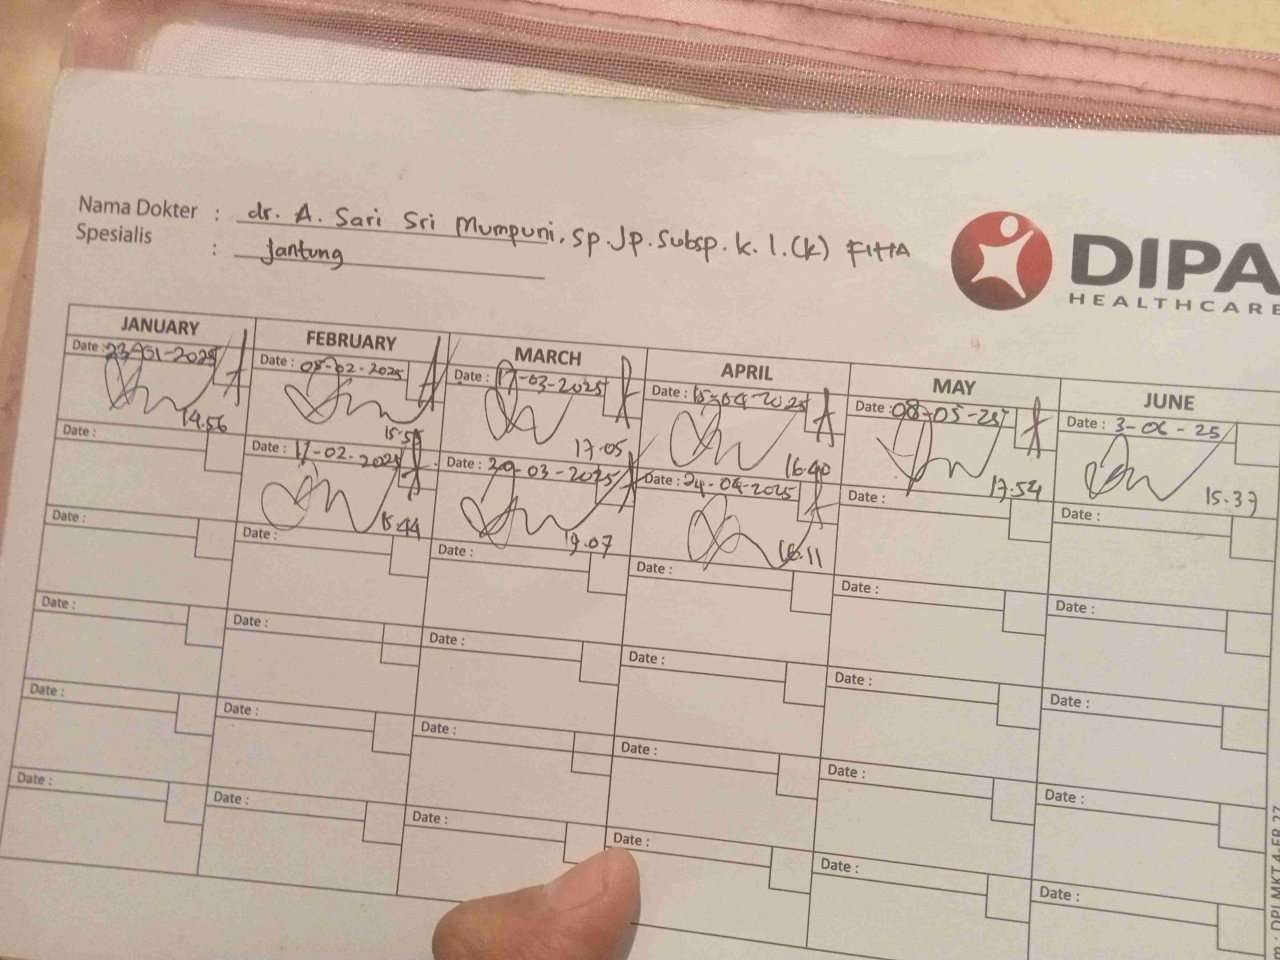 Nama Dokter : dr. A. Sari Sri Mumpuni, Sp.Jp.Subsp.k.l.(k) FIHA
Spesialis : Jantung
DIPA
HEALTHCARE
JANUARY FEBRUARY MARCH APRIL MAY JUNE
Date : 23-01-2025 Date : 05-02-2025 Date : 17-03-2025 Date : 15-04-2025 Date : 08-05-25 Date : 3-06-25
14.56 15.55 17.05 16.40 17.54 15.37
Date : Date : 17-02-2025 Date : 20-03-2025 Date : 24-04-2025 Date : Date :
15.44 19.07 16.11
Date : Date : Date : Date : Date : Date :
Date : Date : Date : Date : Date : Date :
Date : Date : Date : Date : Date : Date :
Date : Date : Date : Date : Date : Date :